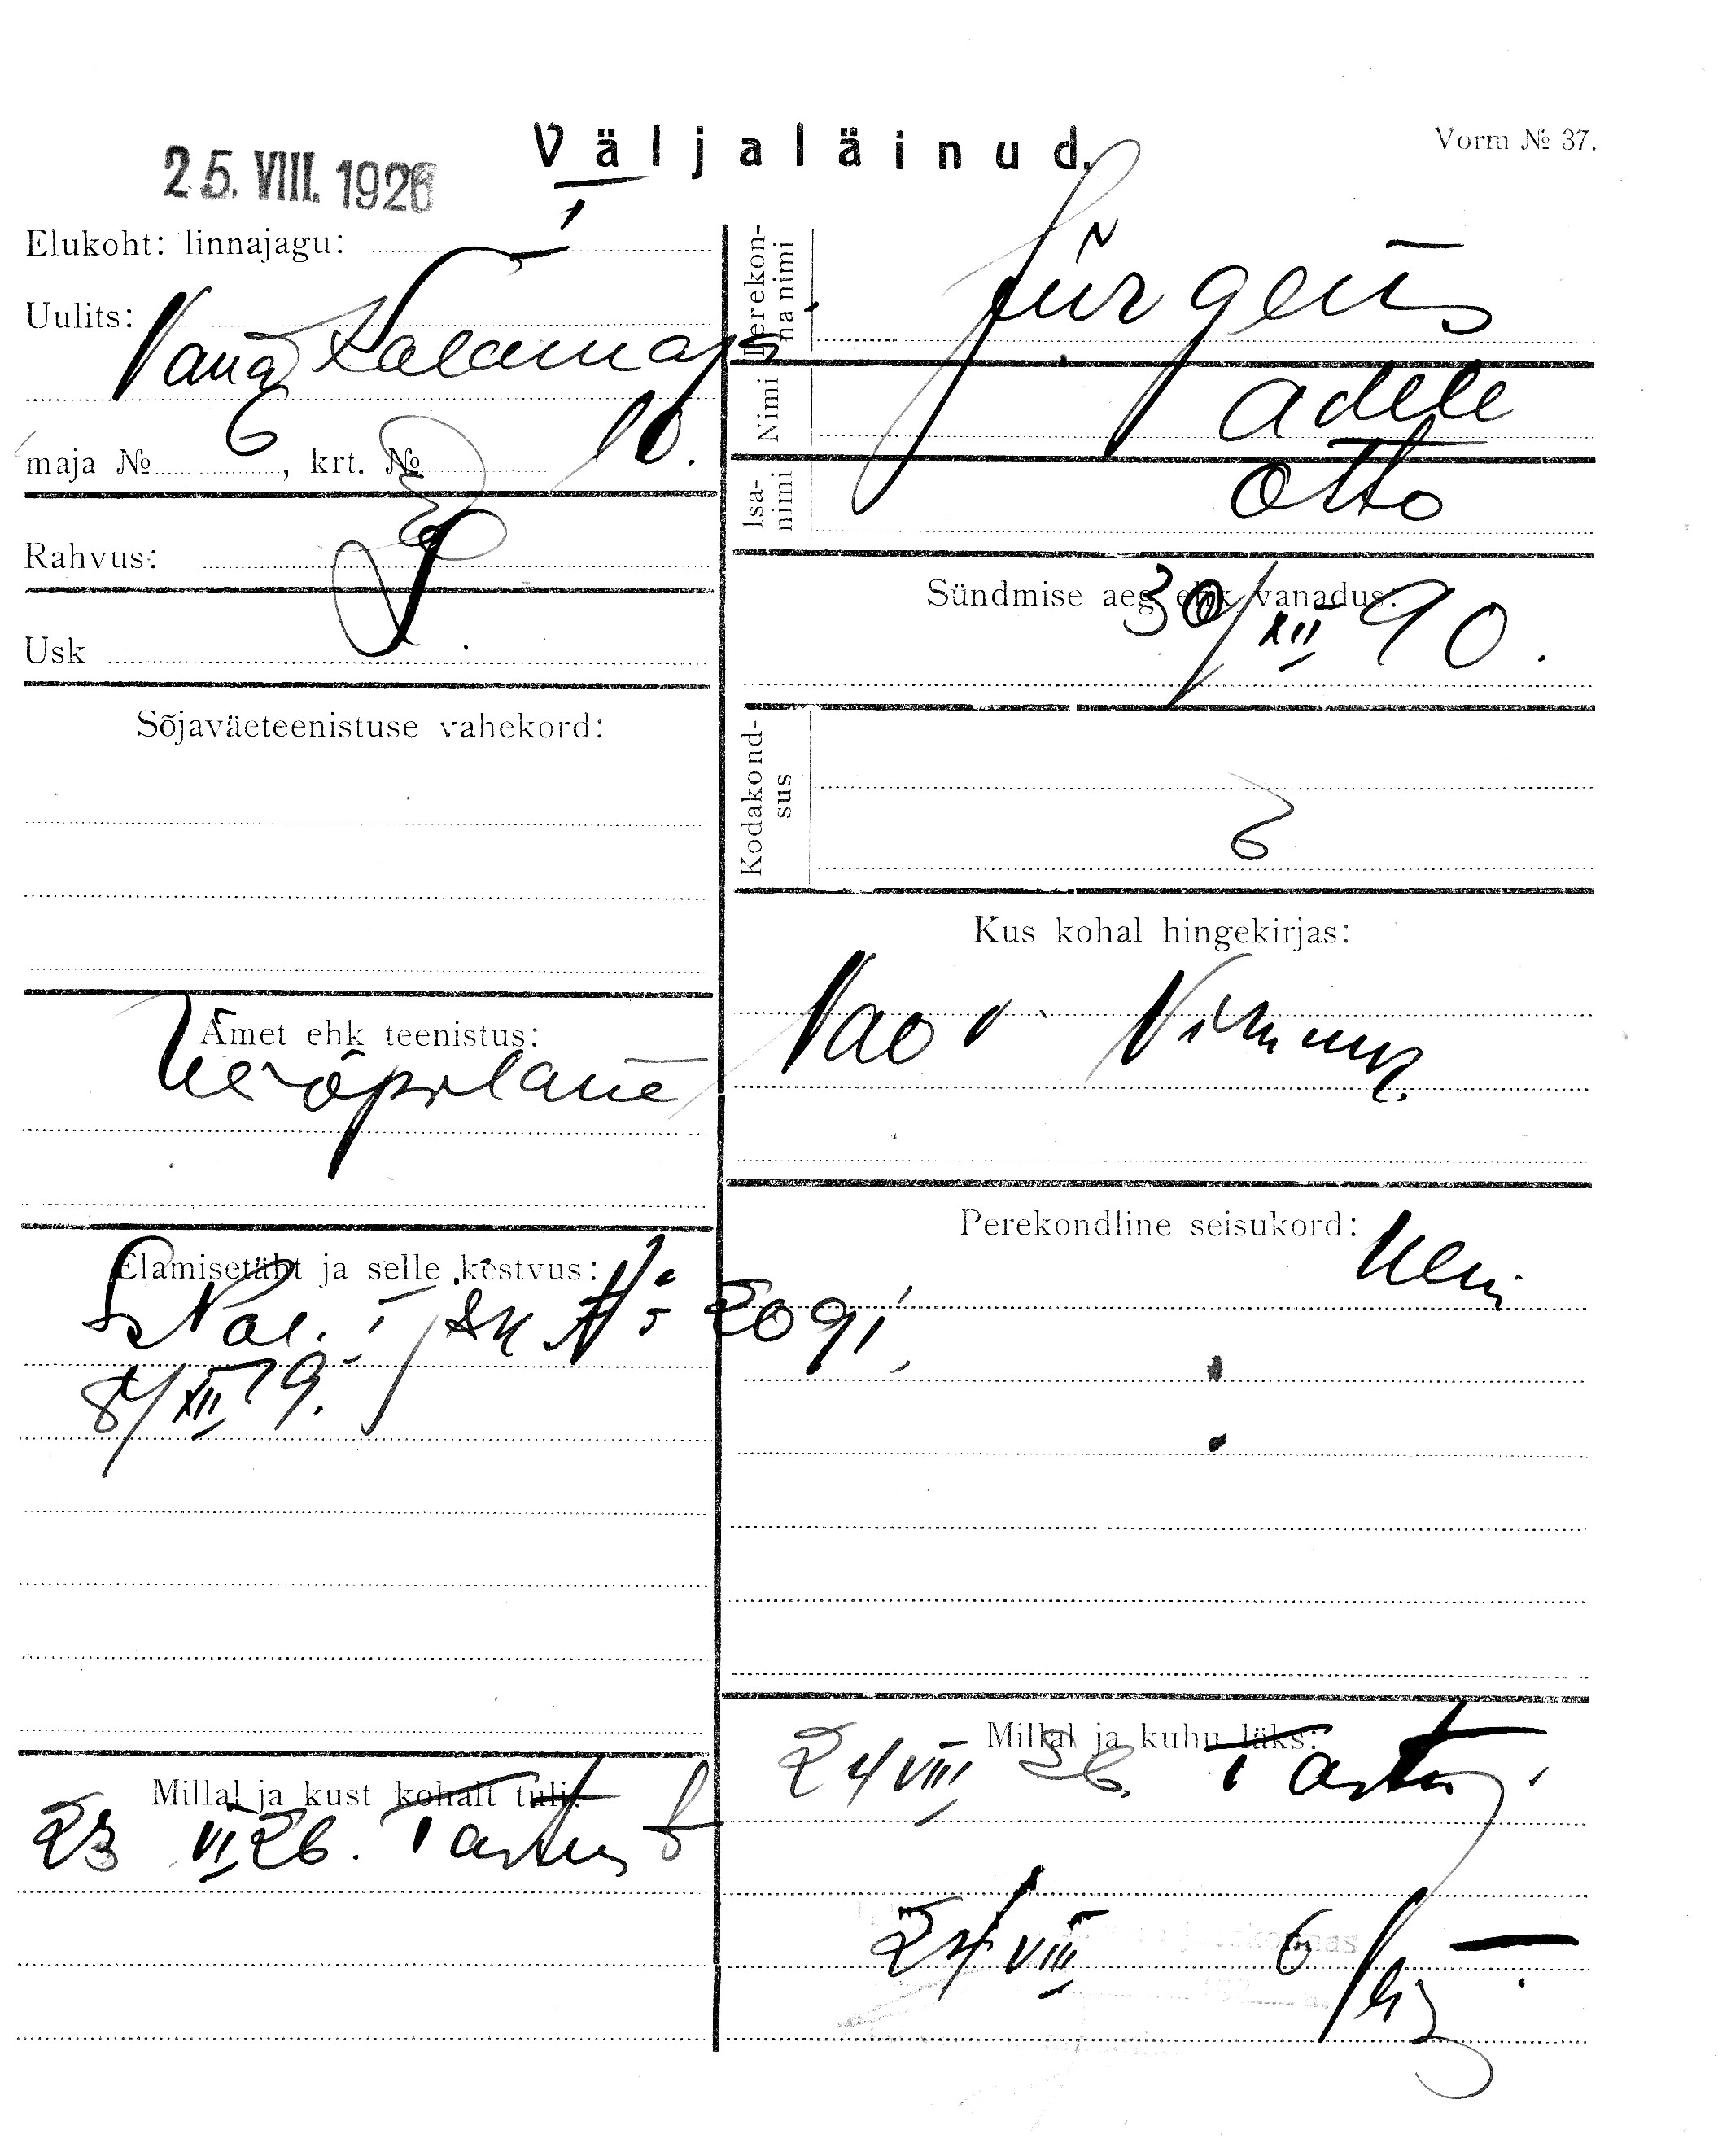 Väljaläinud.
Vorm № 37.
25. VIII. 1926
Elukoht: linnajagu:
Uulits:
Vana Kalamaja
maja № 6, krt. № 10.
Rahvus:
Usk
Sõjaväeteenistuse vahekord:
Amet ehk teenistus:
Üliõpilane
Elamisetäht ja selle kestvus:
№ 2091
8/XII 19.
Millal ja kust kohalt tuli:
23 VI 26. Tartus
Perekonna nimi
Jürgens
Nimi
Adele
Isa-nimi
Otto
Sündmise aeg ehk vanadus:
30/XII 90.
Kodakondsus
Kus kohal hingekirjas:
Vao v.
Perekondline seisukord:
Millal ja kuhu läks:
24 VIII 26. Tartu
24 VIII 6